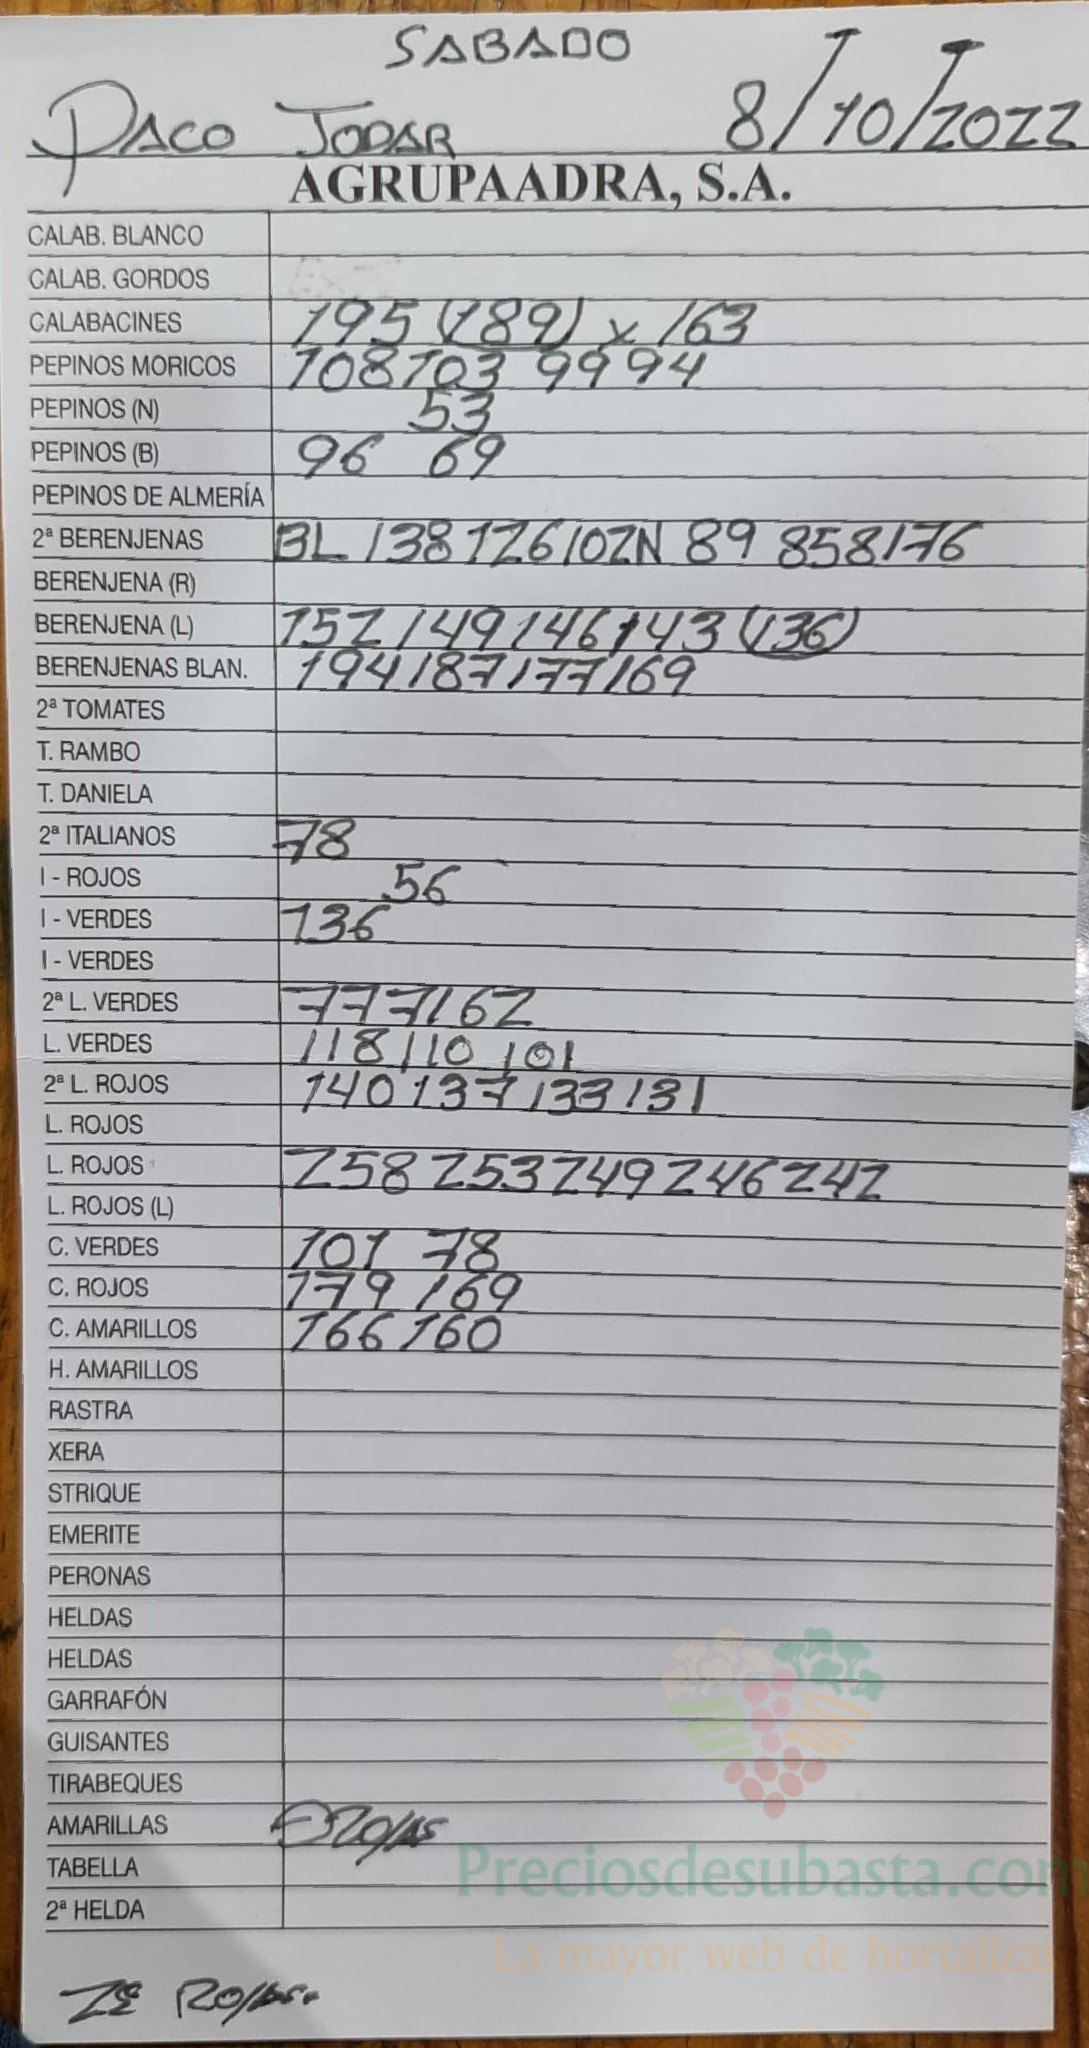 SABADO
PACO JODAR 8/10/2022
AGRUPAADRA, S.A.
CALAB. BLANCO
CALAB. GORDOS
CALABACINES 195 (189) x 163
PEPINOS MORICOS 108 103 99 94
PEPINOS (N) 53
PEPINOS (B) 96 69
PEPINOS DE ALMERÍA
2ª BERENJENAS BL 138 126 102 N 89 85 81 76
BERENJENA (R)
BERENJENA (L) 152 149 146 143 (136)
BERENJENAS BLAN. 194 187 177 169
2ª TOMATES
T. RAMBO
T. DANIELA
2ª ITALIANOS 78
I - ROJOS 56
I - VERDES 136
I - VERDES
2ª L. VERDES 77 71 62
L. VERDES 118 110 101
2ª L. ROJOS 140 137 133 131
L. ROJOS
L. ROJOS 258 253 249 246 242
L. ROJOS (L)
C. VERDES 101 78
C. ROJOS 179 169
C. AMARILLOS 166 160
H. AMARILLOS
RASTRA
XERA
STRIQUE
EMERITE
PERONAS
HELDAS
HELDAS
GARRAFÓN
GUISANTES
TIRABEQUES
AMARILLAS
TABELLA
2ª HELDA
Preciosdesubasta.com
La mayor web de hortalizas